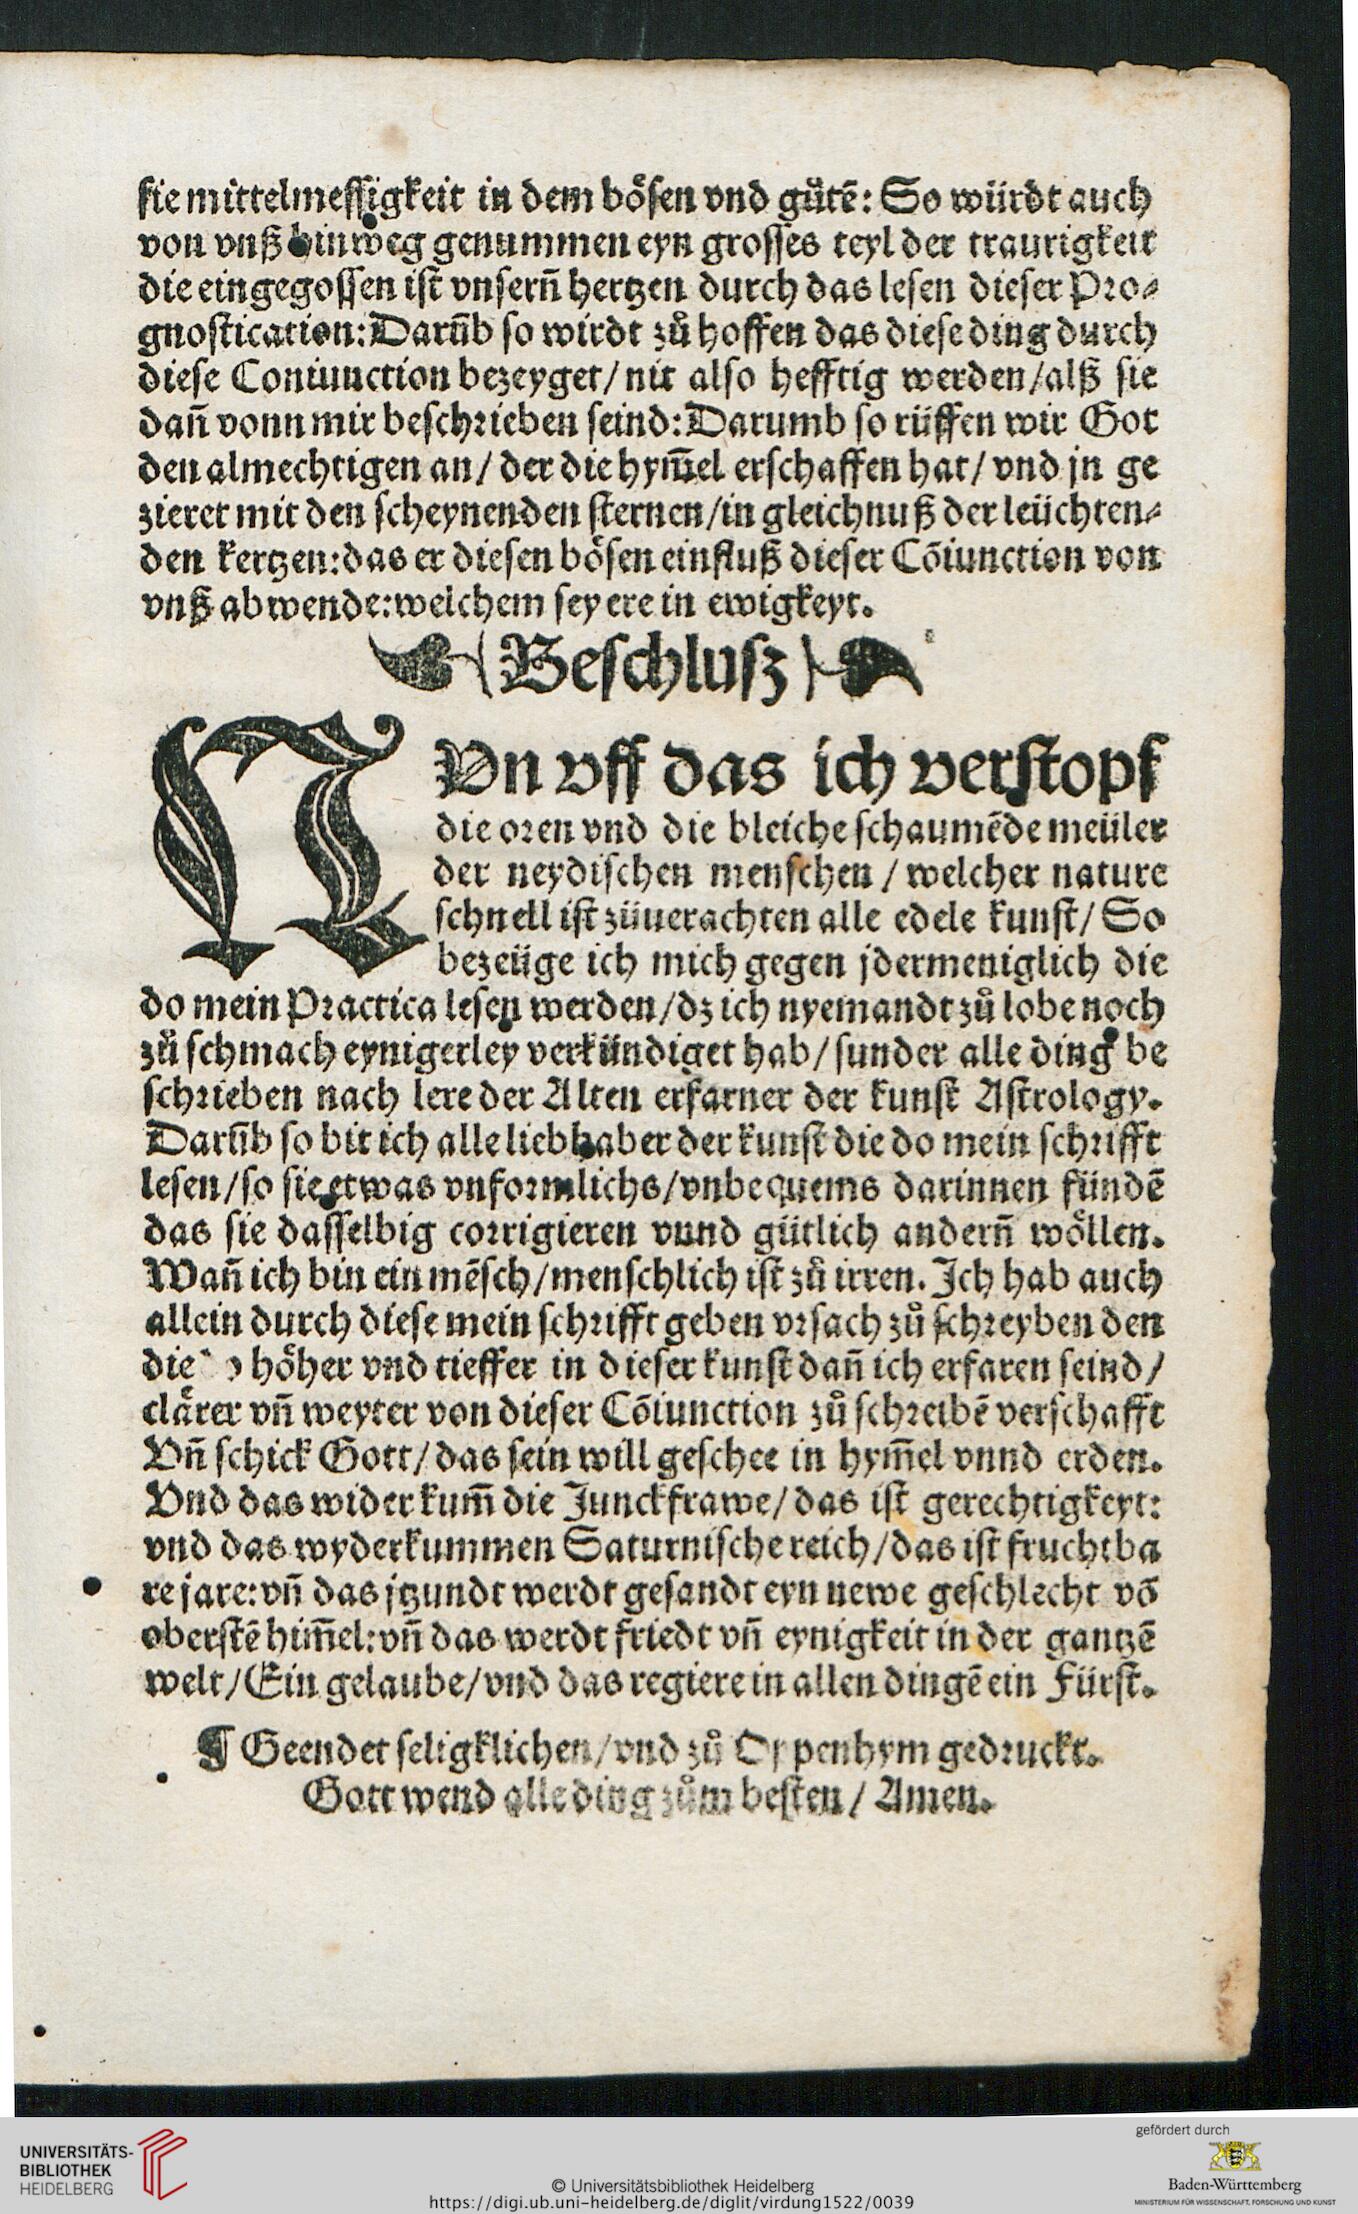 sie mittelmessigkeit in dem bösen vnd gůtē: So würdt auch
von vnß hinweg genummen eyn grosses teyl der traurigkeit
die eingegossen ist vnserñ hertzen durch das lesen dieser Pro⸗
gnostication: Darūb so wirdt zů hoffen das diese ding durch
diese Coniunction bezeyget/ nit also hefftig werden/ alß sie
dañ vonn mir beschrieben seind: Darumb so rüffen wir Got
den almechtigen an/ der die hym̄el erschaffen hat/ vnd jn ge
zieret mit den scheynenden sternen/ in gleichnuß der leüchten⸗
den kertzen: das er diesen bösen einfluß dieser Cōiunction von
vnß abwende: welchem sey ere in ewigkeyt.
(Beschlusz)
NVn vff das ich verstopf
die oren vnd die bleiche schaumēde meüler
der neydischen menschen / welcher nature
schnell ist züuerachten alle edele kunst/ So
bezeüge ich mich gegen jdermeniglich die
do mein Practica lesen werden/ dz ich nyemandt zů lobe noch
zů schmach eynigerley verkündiget hab/ sunder alle ding be
schrieben nach lere der Alten erfarner der kunst Astrology.
Darūb so bit ich alle liebhaber der kunst die do mein schrifft
lesen/ so sie etwas vnformlichs/ vnbequems darinnen fündē
das sie dasselbig corrigieren vnnd gütlich anderñ wöllen.
Wañ ich bin ein mēsch/ menschlich ist zů irren. Ich hab auch
allein durch diese mein schrifft geben vrsach zů schreyben den
die höher vnd tieffer in dieser kunst dañ ich erfaren seind/
clärer vñ weyter von dieser Cōiunction zů schreibē verschafft
Vñ schick Gott/ das sein will geschee in hym̄el vnnd erden.
Vnd das wider kum̄ die Junckfrawe/ das ist gerechtigkeyt:
vnd das wyderkummen Saturnische reich/ das ist fruchtba
re jare: vñ das jtzundt werdt gesandt eyn newe geschlecht vō
oberstē him̄el: vñ das werdt friedt vñ eynigkeit in der gantzē
welt/ Ein gelaube/ vnd das regiere in allen dingē ein Fürst.
¶ Geendet seligklichen/ vnd zů Oppenhym gedruckt.
Gott wend alle ding zům besten/ Amen.
UNIVERSITÄTS-
BIBLIOTHEK
HEIDELBERG
© Universitätsbibliothek Heidelberg
https://digi.ub.uni-heidelberg.de/diglit/virdung1522/0039
gefördert durch
Baden-Württemberg
MINISTERIUM FÜR WISSENSCHAFT, FORSCHUNG UND KUNST